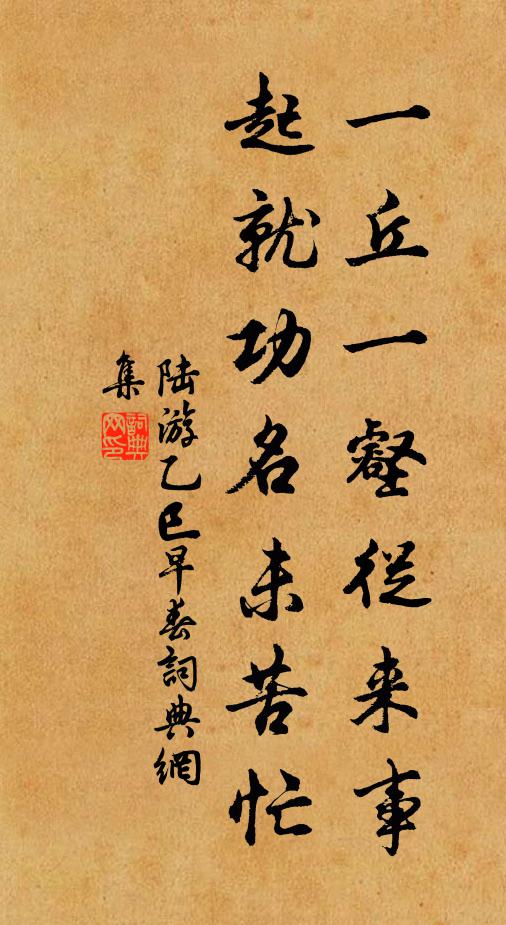 一丘一壑從来事
起就功名未苦忙
陆游乙巳早春詞典網
集
詞典网印